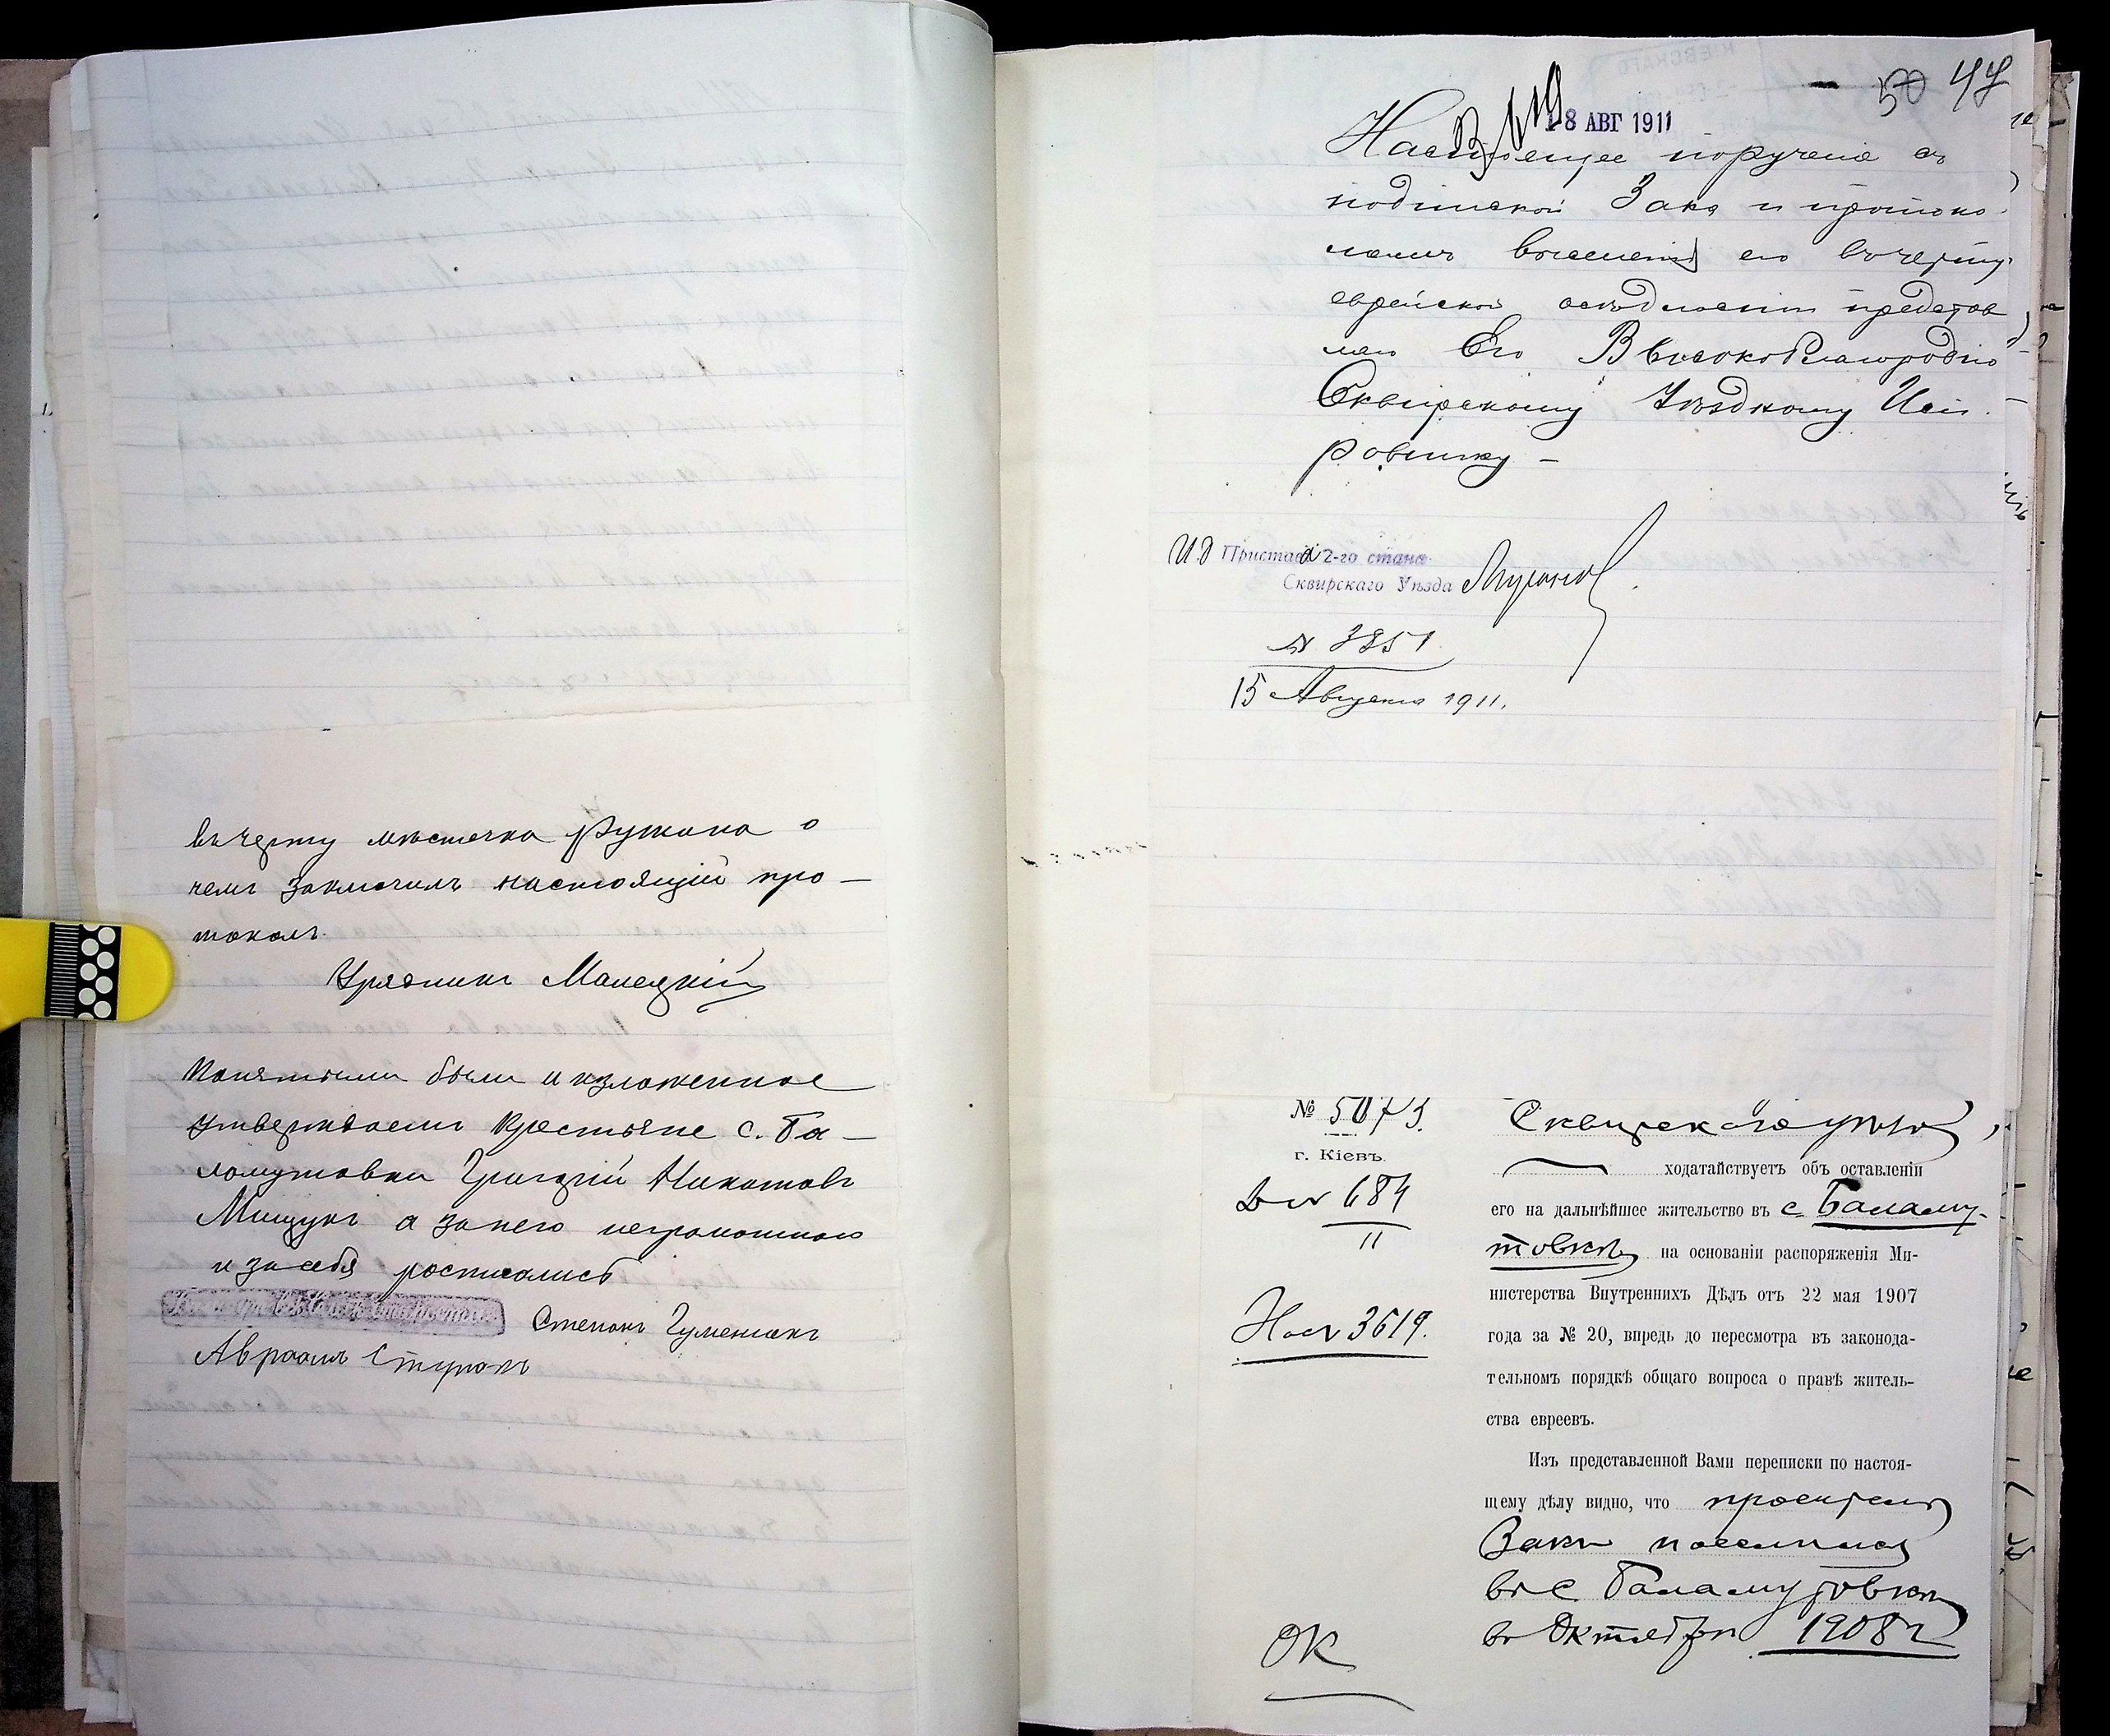 въ черту мѣстечка Ружина о
чемъ заключилъ настоящій про-
токолъ.
Урядникъ Малецкій
Понятыми были и изложенное
утверждаемъ крестьяне с. Ба-
ломутовки Григорій Никитовъ
Мищукъ а за него неграмотнаго
и за себя росписались
Степанъ Гуменюкъ
Авраамъ
50 47
18 АВГ 1911
Настоящее порученіе съ
подпиской Зака и протоко-
ломъ выселенія его въ черту
еврейской осѣдлости представ
ляю Его Высокоблагородію
Сквирскому Уѣздному Исп
равнику –
И.д Пристава 2-го стана
Сквирскаго Уѣзда
№ 3851
15 Августа 1911.
№ 5073.
г. Кіевъ.
684
11
3619.
ОК
Сквирскаго уѣзда,
ходатайствуетъ объ оставленіи
его на дальнѣйшее жительство въ с. Баламу-
товкѣ, на основаніи распоряженія Ми-
нистерства Внутреннихъ Дѣлъ отъ 22 мая 1907
года за № 20, впредь до пересмотра въ законода-
тельномъ порядкѣ общаго вопроса о правѣ житель-
ства евреевъ.
Изъ представленной Вами переписки по настоя-
щему дѣлу видно, что проситель
Закъ поселился
въ с. Баламутовкѣ
въ Октябрѣ 1908 г